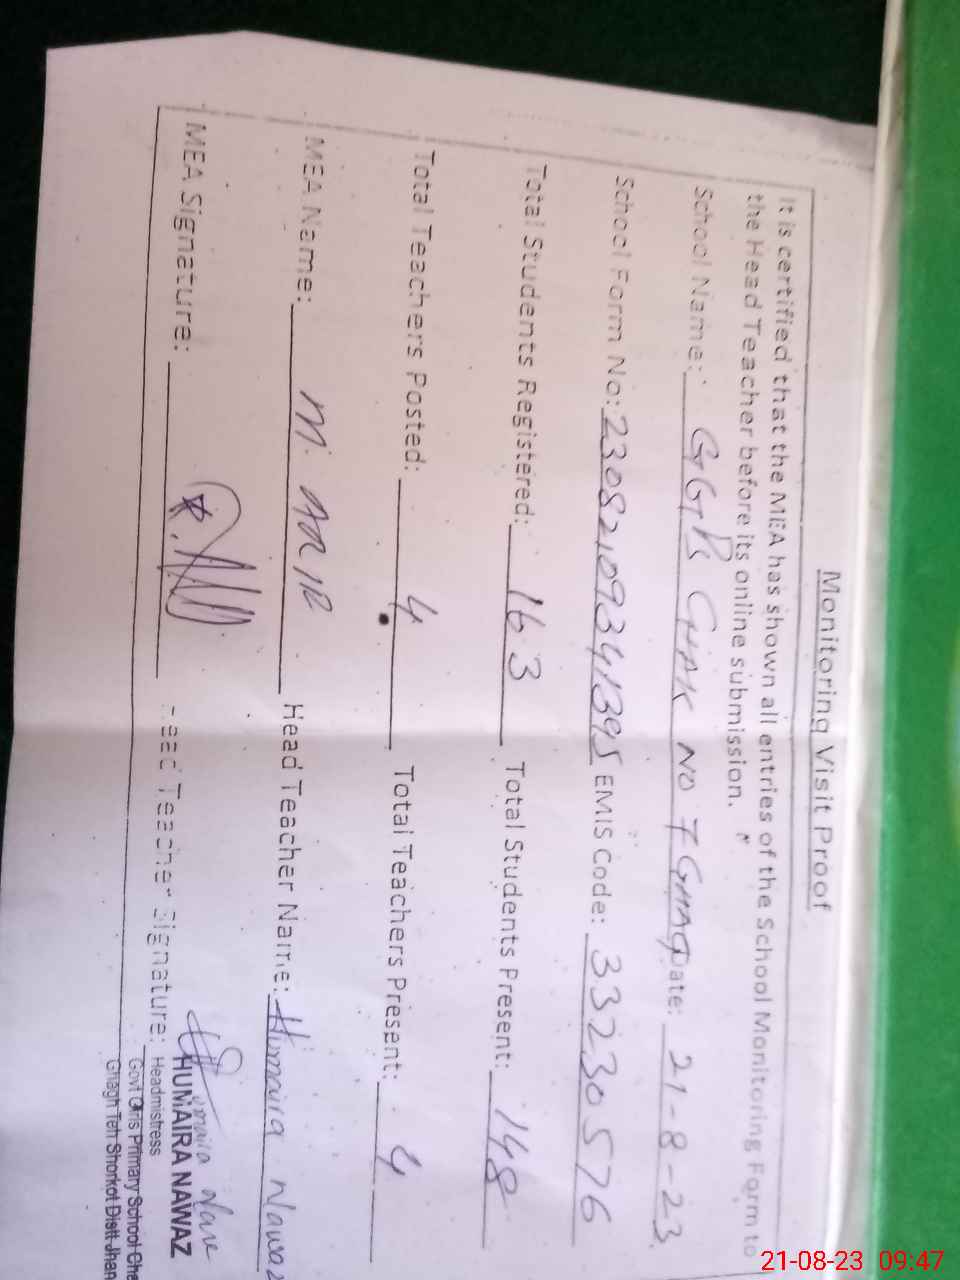 Monitoring Visit Proof
It is certified that the MEA has shown all entries of the School Monitoring Form to
the Head Teacher before its online submission.
School Name: GGPS CHAK NO 7 GHAGH Date: 21-8-23
School Form No: 23082109341395 EMIS Code: 33230576
Total Students Registered: 163 Total Students Present: 148
Total Teachers Posted: 4 Total Teachers Present: 4
MEA Name: M. Head Teacher Name: Humaira Nawaz
MEA Signature: Head Teacher Signature:
Humaira
HUMAIRA NAWAZ
Headmistress
Govt Girls Primary School
Ghagh Teh Shorkot Distt Jhan
21-08-23 09:47